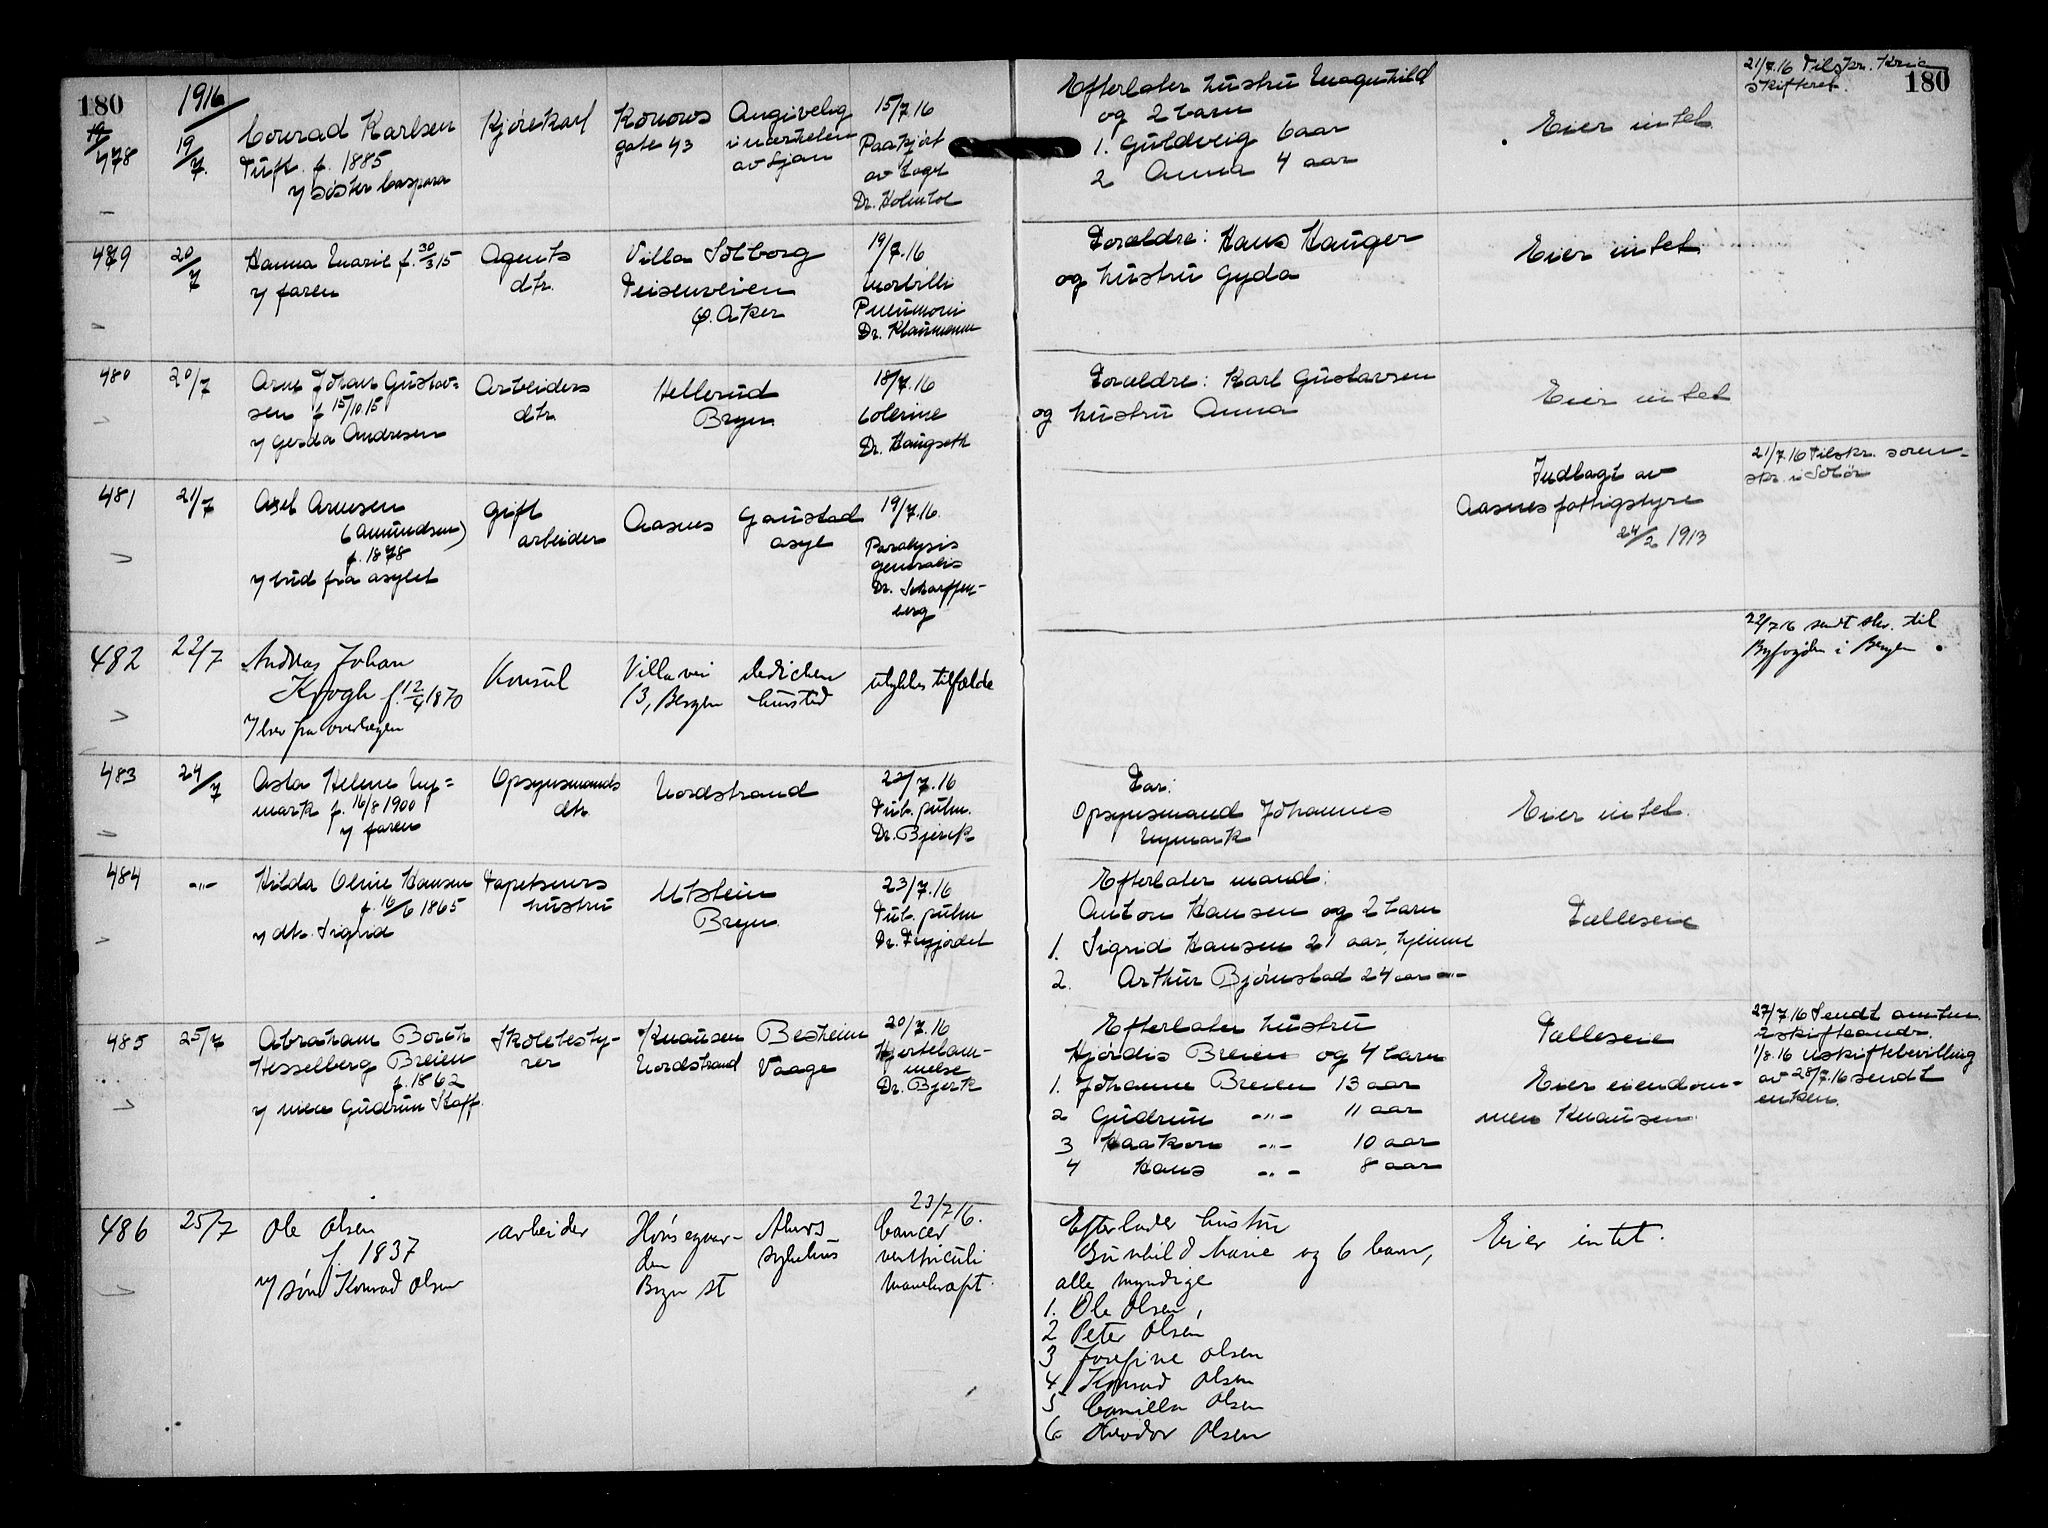 180
1916
478
19/7
Conrad Karlsen
Tuft. f. 1885
v/ søster Caspara
Kjørekarl
Konows
gate 43
Angivelig
i nærheten
av Ljan
15/7.16
Paakjørt
av toget
Dr. Holmboe
Efterlater hustru Magnhild
og 2 barn
1. Guldveig 6 aar
2 Anna 4 aar
Eier intet
21/7.16 Tilskr. Kria
skifteret.
180
479
20/7
Hanna Marie f. 30/3 15
v/ faren
Agents
dtr.
Villa Solborg
Teisenveien
Ø. Aker
19/7.16
Morbilli
Pneumoni
Dr. Klaumann
Forældre: Hans Hauger
og hustru Gyda
Eier intet
480
20/7
Arne Johan Gustav=
sen f 15/10.15
v/ Gerda Andresen
Arbeiders
dtr.
Hellerud
Bryn
18/7.16
Colerine
Dr. Haugseth
Forældre: Karl Gustavsen
og hustru Anna
Eier intet
481
21/7
Axel Arnesen
(Amundsen)
f. 1878
v/ bud fra asylet
gift
arbeider
Aasnes
Gaustad
asyl
19/7.16.
Paralysis
generalis
Dr. Scharffen-
berg
Indlagt av
Aasnes fattigstyre
24/2 1913
21/7.16 Tilskr. soren-
skr. i Solør
482
22/7
Andreas Johan
Krogh f. 12/4 1870
v/ brev fra overlægen
Konsul
Villavei
13, Bergen
Dedichen
hursted
ulykkestilfælde
22/7 16 sendt skr. til
Byfogden i Bergen
483
24/7
Asta Helene Ny=
mark f. 16/8 1900
v/ faren
Opsynsmands
dtr.
Nordstrand
22/7.16
Tub. pulm.
Dr. Bjerck
Far:
Opsynsmand Johannes
Nymark
Eier intet.
484
-"-
Hilda Oline Hansen
f. 16/6 1865
v/ dtr. Sigrid
Tapetserers
hustru
Utstein
Bryn
23/7.16
Tub. pulm
Dr. Tegjordet
Efterlater mand:
Anton Hansen og 2 barn
1. Sigrid Hansen 21 aar, hjemme
2. Arthur Bjørnstad 24 aar -"-
Fælleseie
485
25/7
Abraham Borch
Hesselberg Breien
f. 1862
v/ niece Gudrun Kaff.
Skolebesty-
rer
Knausen
Nordstrand
Besheim
Vaage
20/7.16
Hjertelam-
melse
Dr. Bjerk
Efterlater hustru
Hjørdis Breien og 4 barn
1. Johanne Breien 13 aar
2 Gudrun -"- 11 aar
3 Haakon -"- 10 aar
4 Hans -"- 8 aar
Fælleseie
Eier eiendom-
men Knausen
27/7.16 Sendt amtm.
uskifteandr.
1/8.16 uskiftebevilling
av 28/7.16 sendt
enken.
486
25/7
Ole Olsen
f. 1837
v/ søn Konrad Olsen
arbeider
Hønsegaar-
den
Bryn st
Akers
sykehus
23/7 16.
Cancer
ventriculi
Mavekræft.
Efterlader hustru
Gunhild Marie og 6 barn,
alle myndige
1. Ole Olsen,
2 Peter Olsen
3 Josefine Olsen
4 Konrad Olsen
5 Camilla Olsen
6 Theodor Olsen
Eier intet.